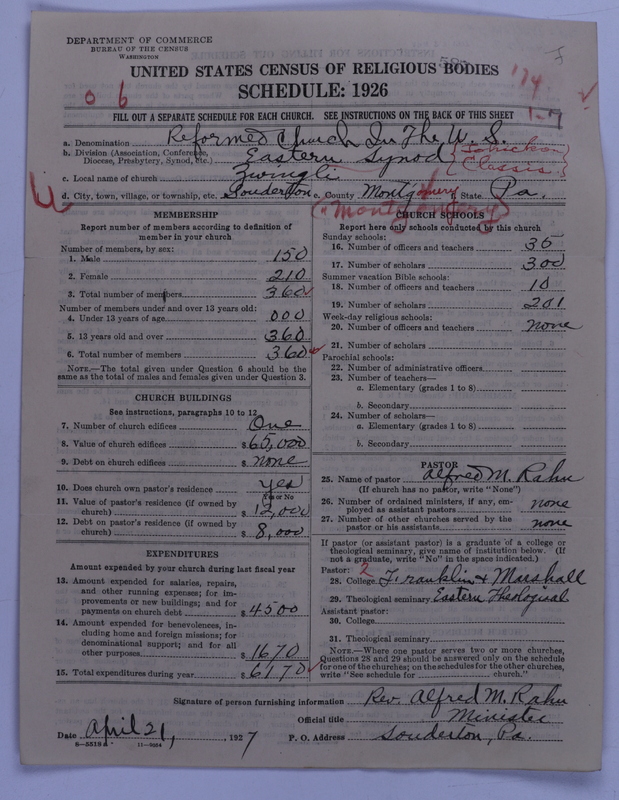 DEPARTMENT OF COMMERCE
BUREAU OF THE CENSUS
WASHINGTON
UNITED STATES CENSUS OF RELIGIOUS BODIES
SCHEDULE: 1926
174
0 6
1-7
FILL OUT A SEPARATE SCHEDULE FOR EACH CHURCH. SEE INSTRUCTIONS ON THE BACK OF THIS SHEET
a. Denomination Reformed Church In The U. S.
b. Division (Association, Conference, Diocese, Presbytery, Synod, etc.) Eastern Synod Tohickon Classis
c. Local name of church Zwingli
d. City, town, village, or township, etc. Souderton e. County Montgomery f. State Pa.
(Montgomery)
MEMBERSHIP
Report number of members according to definition of
member in your church
Number of members, by sex:
1. Male 150
2. Female 210
3. Total number of members 360
Number of members under and over 13 years old:
4. Under 13 years of age 000
5. 13 years old and over 360
6. Total number of members 360
NOTE.—The total given under Question 6 should be the
same as the total of males and females given under Question 3.
CHURCH BUILDINGS
See instructions, paragraphs 10 to 12
7. Number of church edifices One
8. Value of church edifices $65,000
9. Debt on church edifices $none
10. Does church own pastor's residence yes
(Yes or No)
11. Value of pastor's residence (if owned by
church) $12,000
12. Debt on pastor's residence (if owned by
church) $8,000
EXPENDITURES
Amount expended by your church during last fiscal year
13. Amount expended for salaries, repairs,
and other running expenses; for im-
provements or new buildings; and for
payments on church debt $4500
14. Amount expended for benevolences, in-
cluding home and foreign missions; for
denominational support; and for all
other purposes $1670
15. Total expenditures during year $6170
CHURCH SCHOOLS
Report here only schools conducted by this church
Sunday schools:
16. Number of officers and teachers 35
17. Number of scholars 300
Summer vacation Bible schools:
18. Number of officers and teachers 10
19. Number of scholars 201
Week-day religious schools:
20. Number of officers and teachers none
21. Number of scholars
Parochial schools:
22. Number of administrative officers
23. Number of teachers—
a. Elementary (grades 1 to 8)
b. Secondary
24. Number of scholars—
a. Elementary (grades 1 to 8)
b. Secondary
PASTOR
25. Name of pastor Alfred M. Rahn
(If church has no pastor, write "None")
26. Number of ordained ministers, if any, em-
ployed as assistant pastors none
27. Number of other churches served by the
pastor or his assistants none
If pastor (or assistant pastor) is a graduate of a college or
theological seminary, give name of institution below. (If
not a graduate, write "No" in the space indicated.)
Pastor: 2
28. College Franklin & Marshall
29. Theological seminary Eastern Theological
Assistant pastor:
30. College
31. Theological seminary
NOTE.—Where one pastor serves two or more churches,
Questions 28 and 29 should be answered only on the schedule
for one of the churches; on the schedules for the other churches,
write "See schedule for church."
Signature of person furnishing information Rev. Alfred M. Rahn
Official title Minister
Date April 21, 1927 P. O. Address Souderton, Pa.
6—5518 a 11—9064